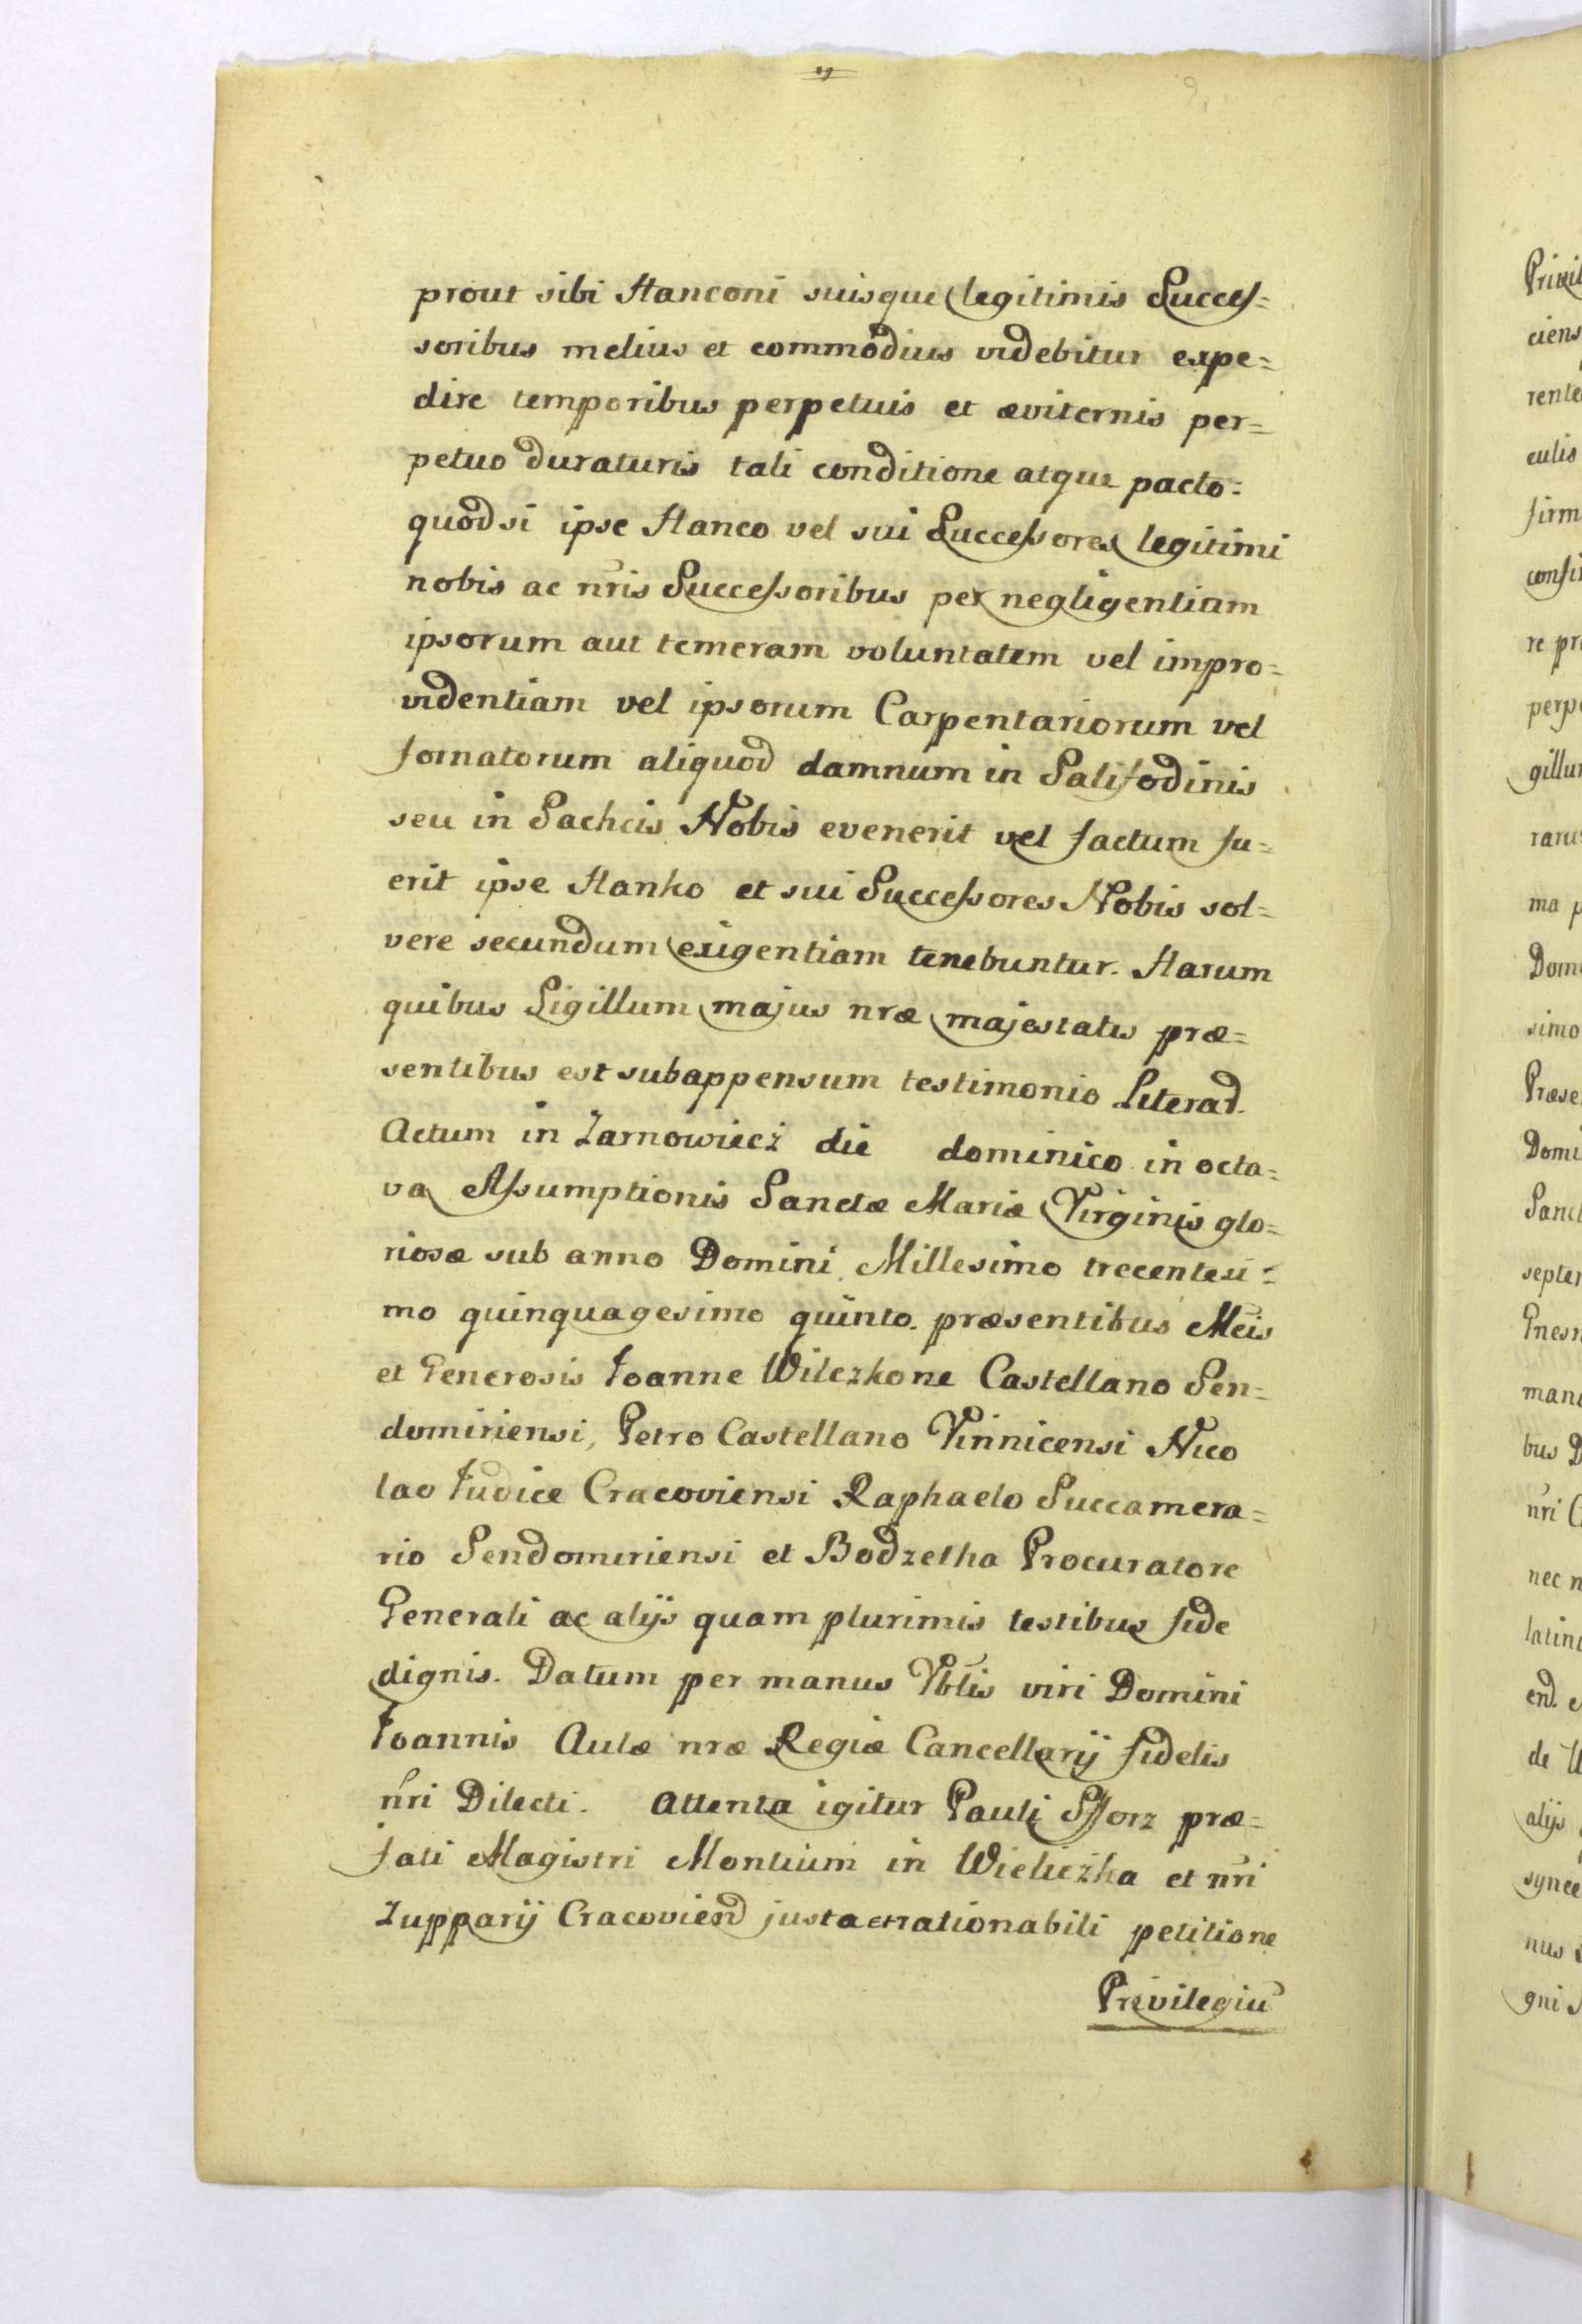 prout sibi Hanconi suisque legitimis Succes=
soribus melius et commodius videbitur expe=
dire temporibus perpetuis et æviternis per=
petuo duraturis tali conditione atque pacto=
quod si ipse Hanco vel sui Successores legitimi
nobis ac nr̃is Successoribus per negligentiam
ipsorum aut temeram voluntatem vel impro=
videntiam vel ipsorum Carpentariorum vel
fornatorum aliquod damnum in Salifodinis
seu in Sachcis Nobis evenerit vel factum fu=
erit ipse Hanko et sui Successores Nobis sol=
vere secundum exigentiam tenebuntur. Harum
quibus Sigillum majus nræ majestatis præ=
sentibus est subappensum testimonio Literad.
Actum in Zarnowiecż die dominico in octa=
va Assumptionis Sanctæ Mariæ Virginis glo=
riosæ sub anno Domini Millesimo trecentesi=
mo quinquagesimo quinto. præsentibus Mc̃is
et Generosis Joanne Wilczkone Castellano Sen=
domiriensi, Petro Castellano Vinnicensi Nico
lao Judice Cracoviensi Raphaelo Succamera=
rio Sendomiriensi et Bodzetha Procuratore
Generali ac alijs quam plurimis testibus fide
dignis. Datum per manus Vb̃lis viri Domini
Joannis Aulæ nræ Regiæ Cancellarij fidelis
nr̃i Dilecti. Attenta igitur Pauli Sfforz præ=
fati Magistri Montium in Wieliczka et nr̃i
Zupparij Cracoviend justa et rationabili petitione
Privilegiũ